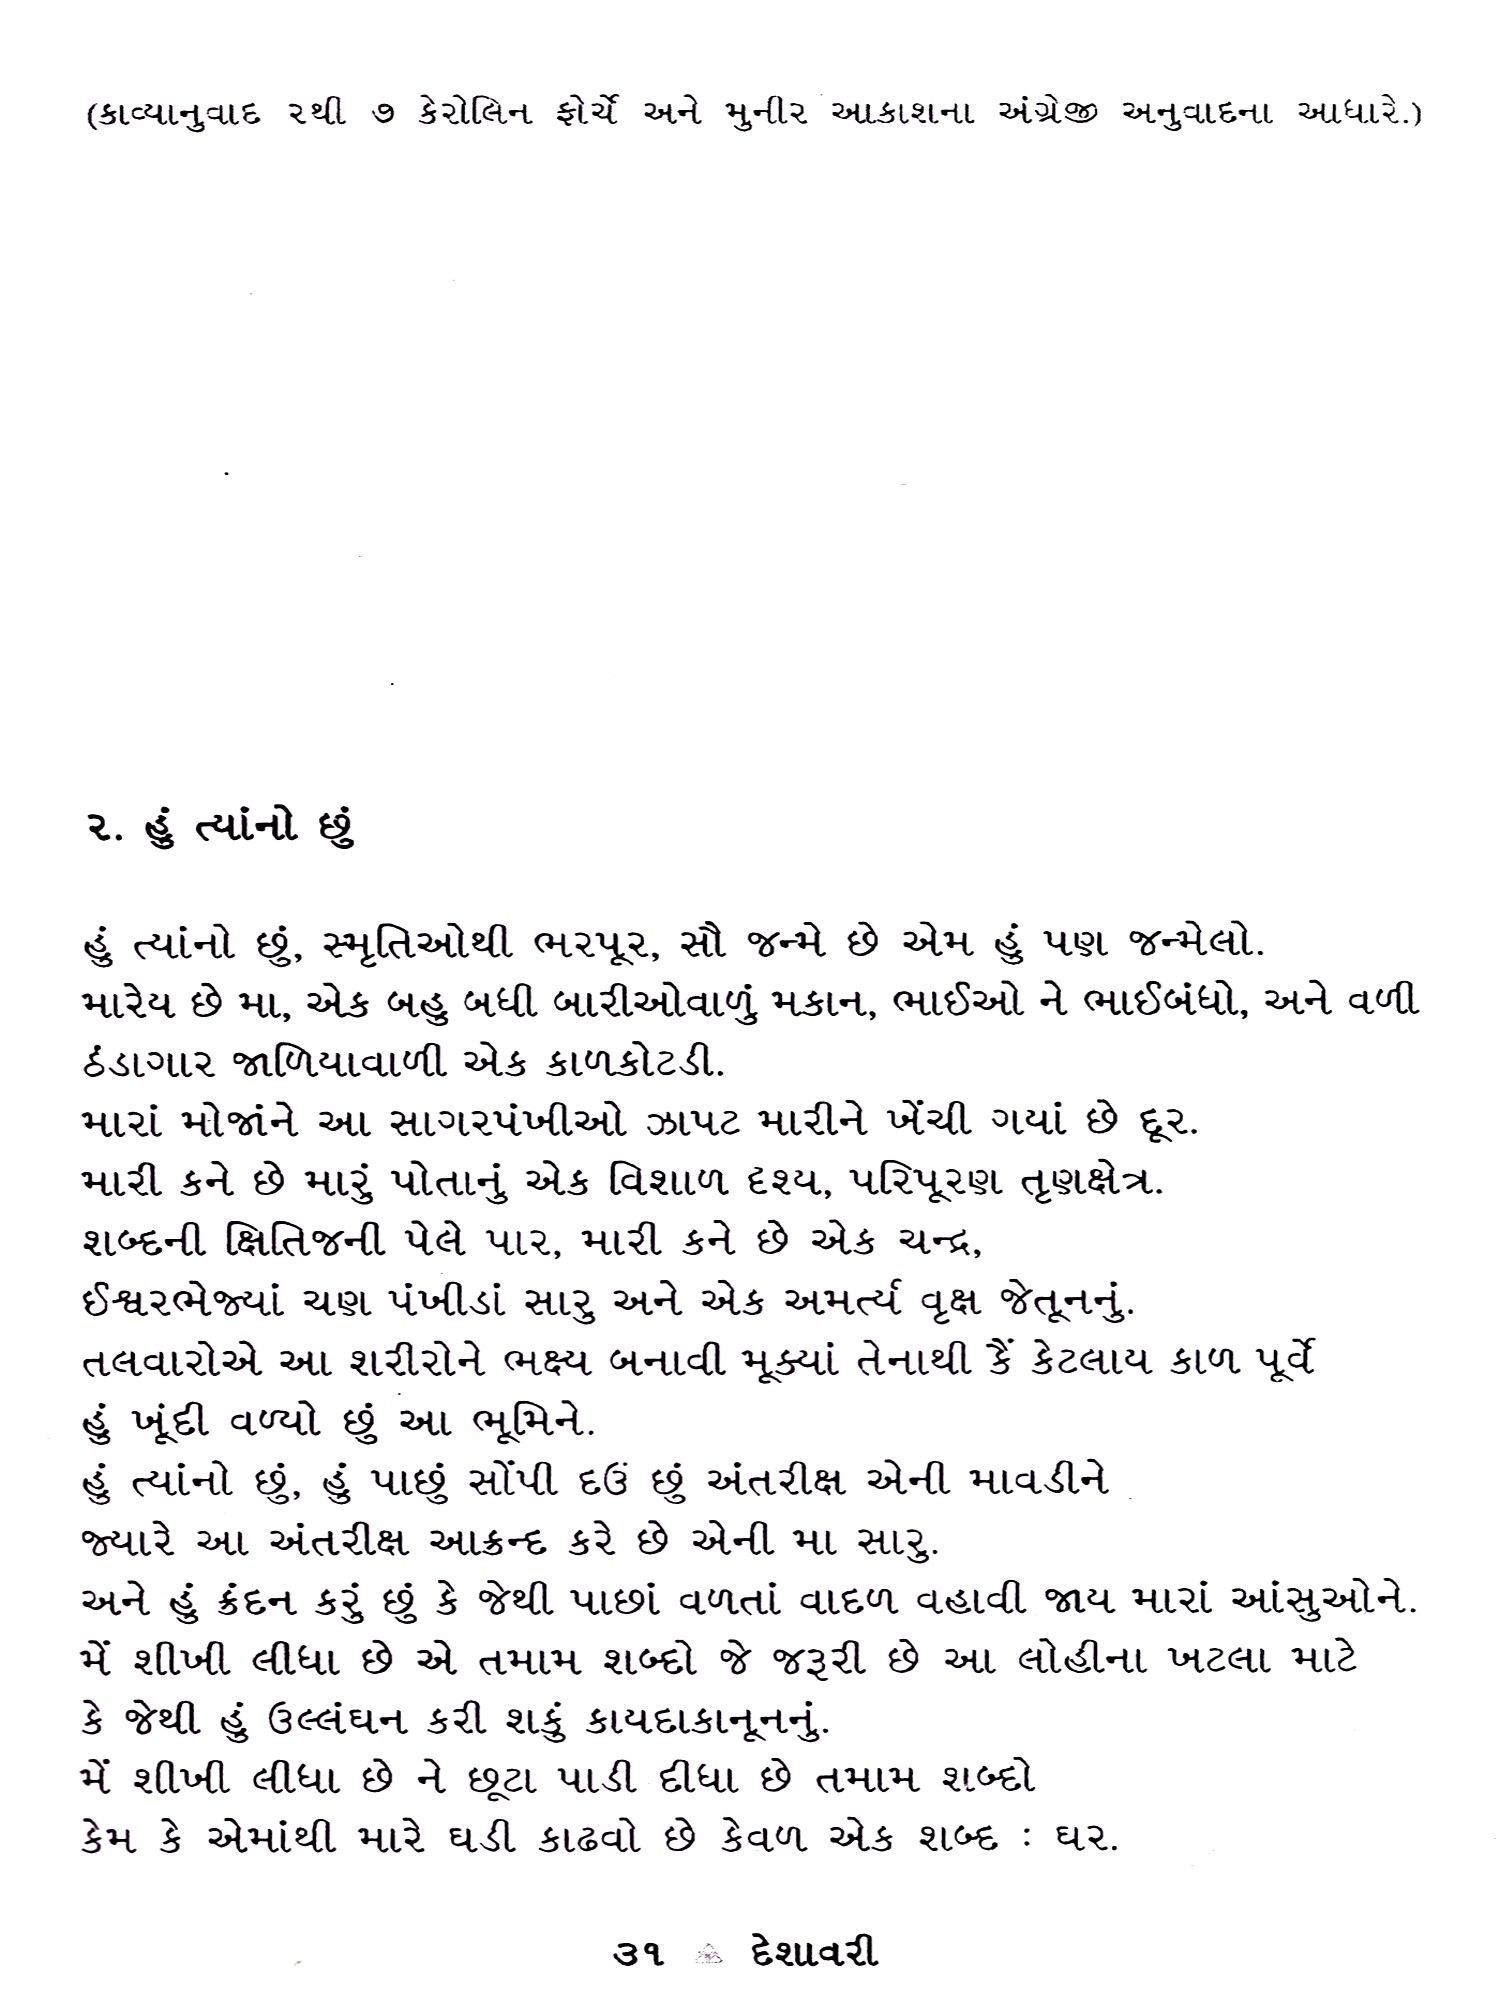 (કાવ્યાનુવાદ ૨થી ૭ કેરોલિન ફોર્ચે અને મુનીર આકાશના અંગ્રેજી અનુવાદના આધારે.)
૨. હું ત્યાંનો છું
હું ત્યાંનો છું, સ્મૃતિઓથી ભરપૂર, સૌ જન્મે છે એમ હું પણ જન્મેલો.
મારેય છે મા, એક બહુ બધી બારીઓવાળું મકાન, ભાઈઓ ને ભાઈબંધો, અને વળી
ઠંડાગાર જાળિયાવાળી એક કાળકોટડી.
મારાં મોજાંને આ સાગરપંખીઓ ઝાપટ મારીને ખેંચી ગયાં છે દૂર.
મારી કને છે મારું પોતાનું એક વિશાળ દૃશ્ય, પરિપૂરણ તૃણક્ષેત્ર.
શબ્દની ક્ષિતિજની પેલે પાર, મારી કને છે એક ચન્દ્ર,
ઈશ્વરભેજ્યાં ચણ પંખીડાં સારુ અને એક અમર્ત્ય વૃક્ષ જેતૂનનું.
તલવારોએ આ શરીરોને ભક્ષ્ય બનાવી મૂક્યાં તેનાથી કૈં કેટલાય કાળ પૂર્વે
હું ખૂંદી વળ્યો છું આ ભૂમિને.
હું ત્યાંનો છું, હું પાછું સોંપી દઉં છું અંતરીક્ષ એની માવડીને
જ્યારે આ અંતરીક્ષ આક્રન્દ કરે છે એની મા સારુ.
અને હું ક્રંદન કરું છું કે જેથી પાછાં વળતાં વાદળ વહાવી જાય મારાં આંસુઓને.
મેં શીખી લીધા છે એ તમામ શબ્દો જે જરૂરી છે આ લોહીના ખટલા માટે
કે જેથી હું ઉલ્લંઘન કરી શકું કાયદાકાનૂનનું.
મેં શીખી લીધા છે ને છૂટા પાડી દીધા છે તમામ શબ્દો
કેમ કે એમાંથી મારે ઘડી કાઢવો છે કેવળ એક શબ્દ : ઘર.
૩૧ દેશાવરી